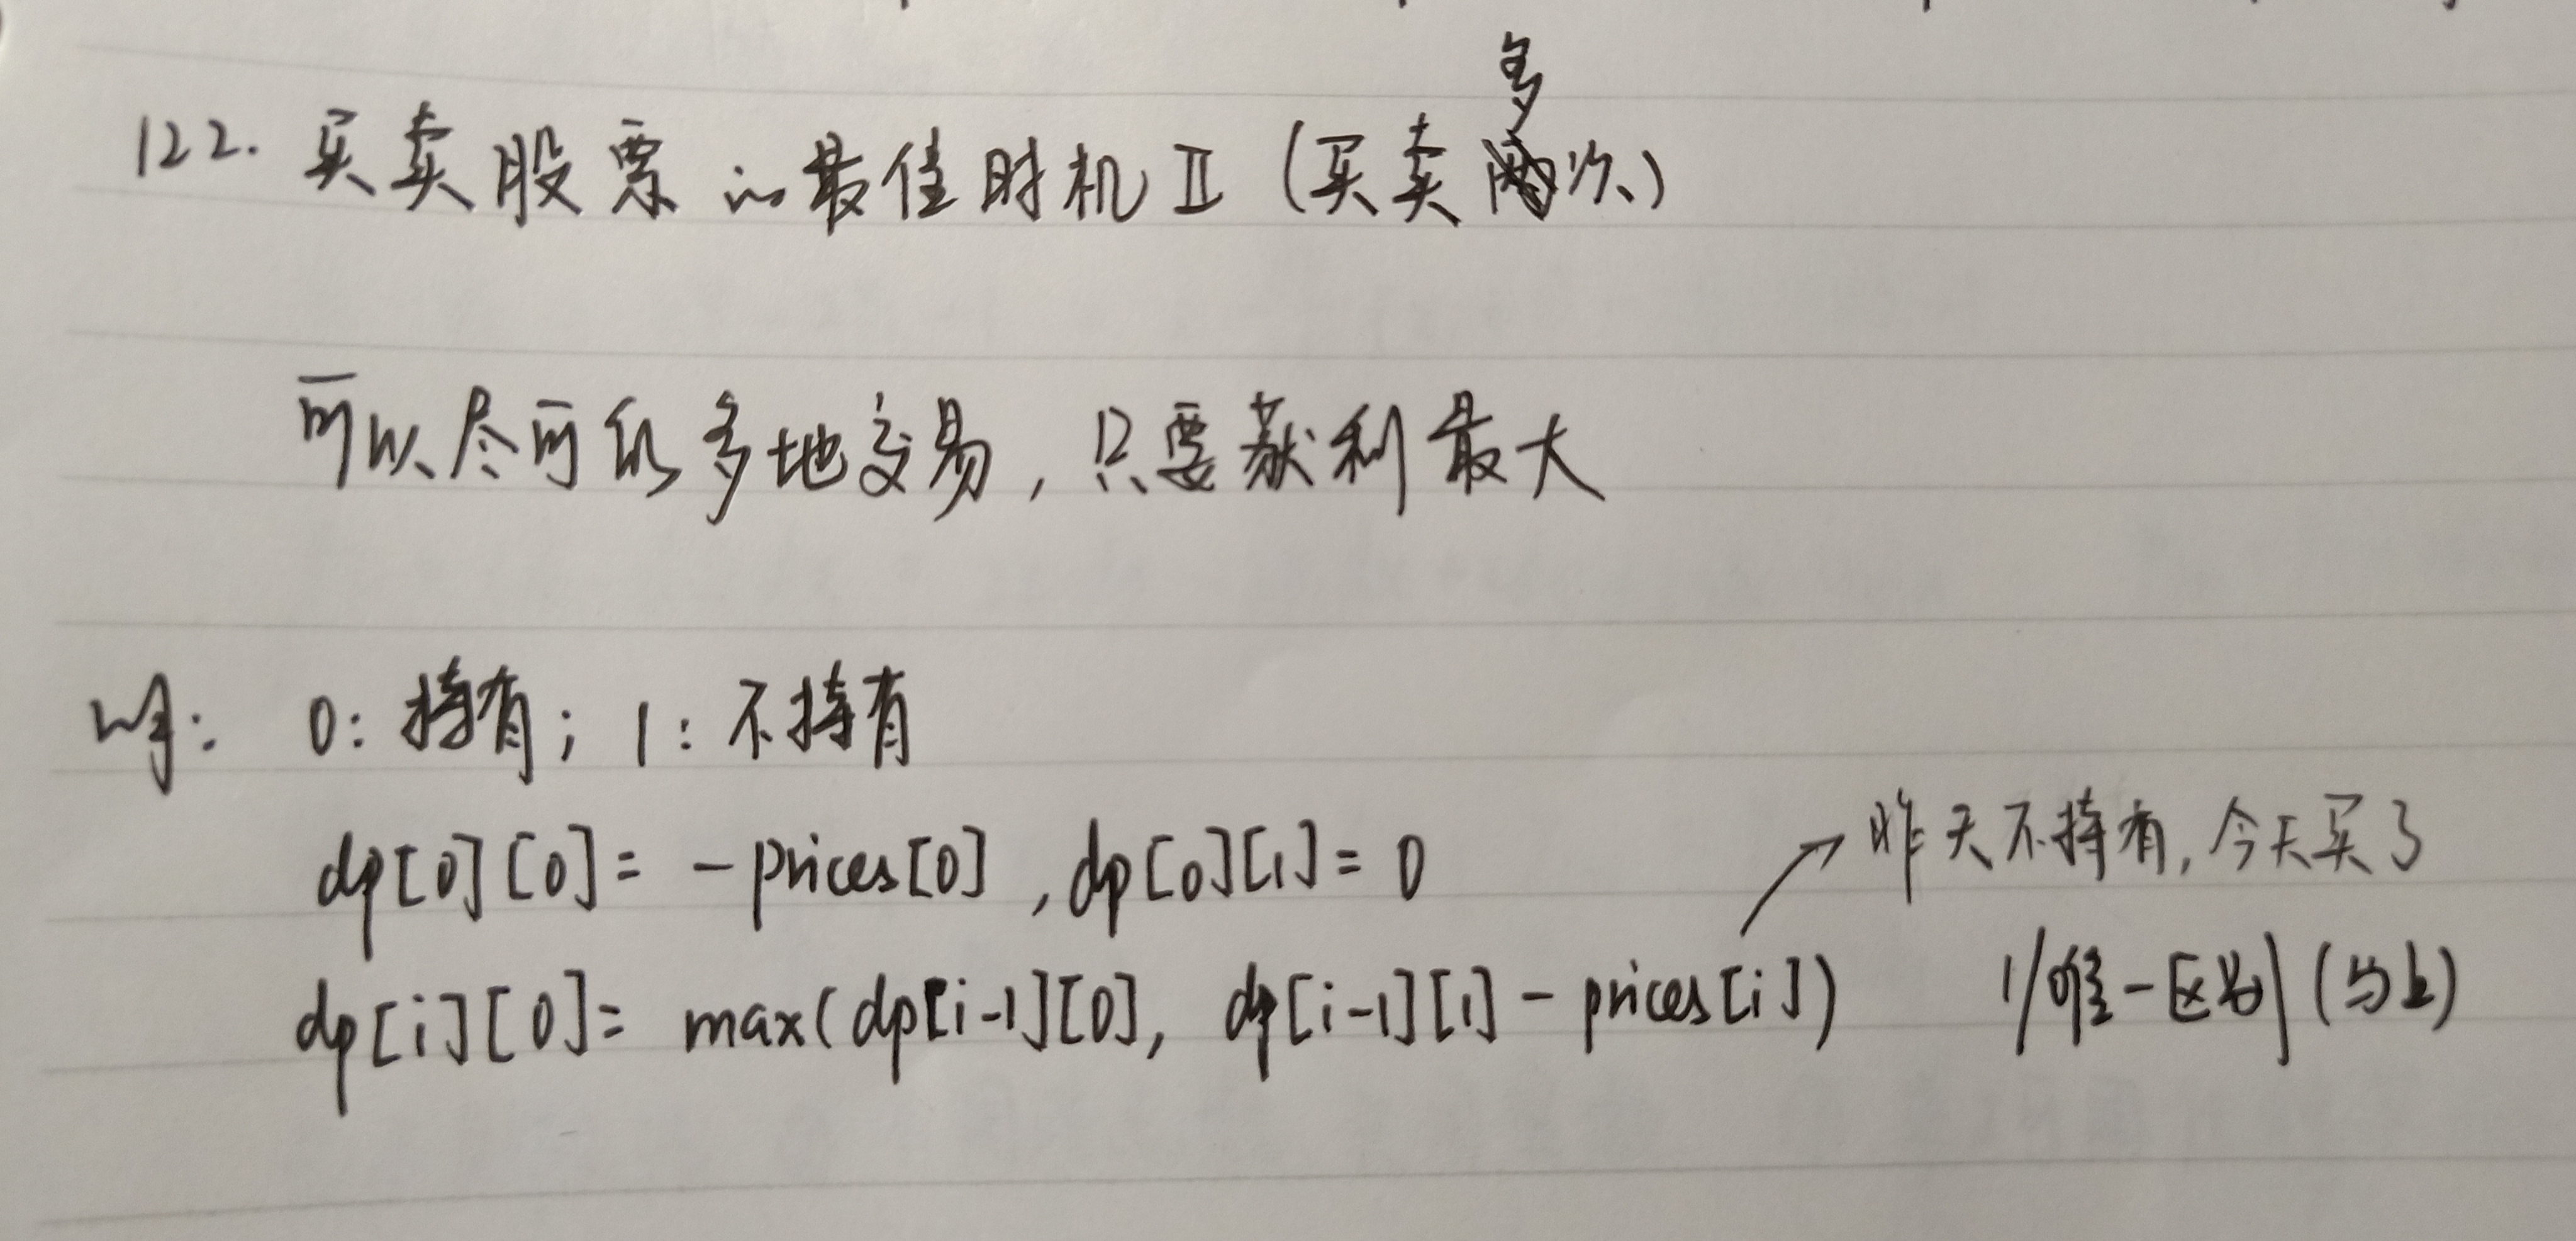 122. 买卖股票的最佳时机 II (买卖多次)
可以尽可能多地交易，只要获利最大
0: 持有; 1: 不持有
dp[0][0] = -prices[0], dp[0][1] = 0
昨天不持有, 今天买了
dp[i][0] = max(dp[i-1][0], dp[i-1][1] - prices[i])
//唯一区别 (与上)